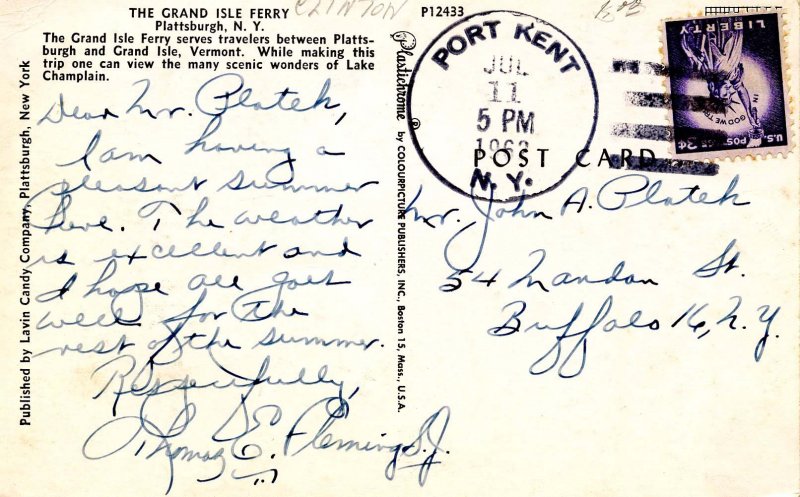 THE GRAND ISLE FERRY
Plattsburgh, N. Y.
The Grand Isle Ferry serves travelers between Platts-
burgh and Grand Isle, Vermont. While making this
trip one can view the many scenic wonders of Lake
Champlain.
CLINTON
P12433
Dear Mr. Platek,
I am having a
pleasant summer
here. The weather
is excellent and
I hope all goes
well for the
rest of the summer.
Respectfully,
Thomas E. Fleming S.J.
Published by Lavin Candy Company, Plattsburgh, New York
Plastichrome ® by COLOURPICTURE PUBLISHERS, INC., Boston 15, Mass., U.S.A.
PORT KENT
JUL
11
5 PM
N. Y.
LIBERTY
IN GOD WE TRUST
U.S. POSTAGE 3¢
POST CARD
Mr. John A. Platek
54 Mandan St.
Buffalo 16, N.Y.